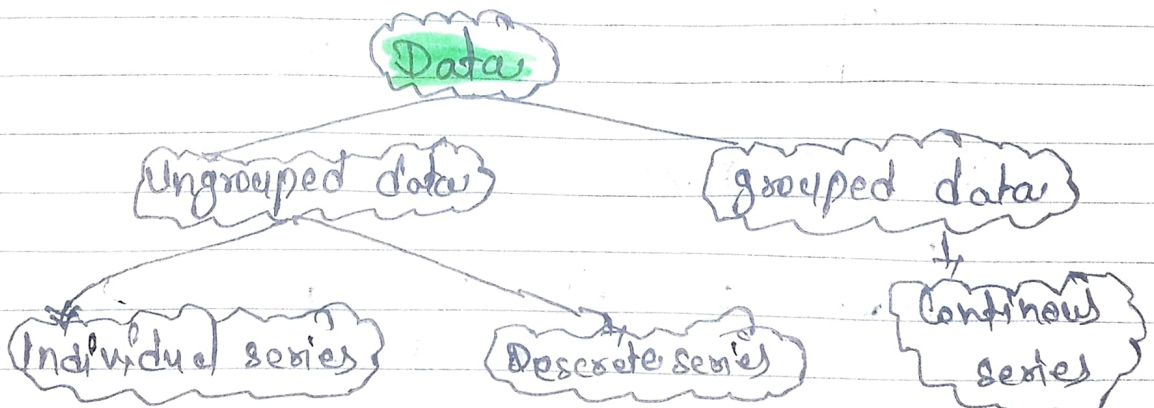 Data
Ungrouped data
grouped data
Individual series
Descrete series
Continous
series